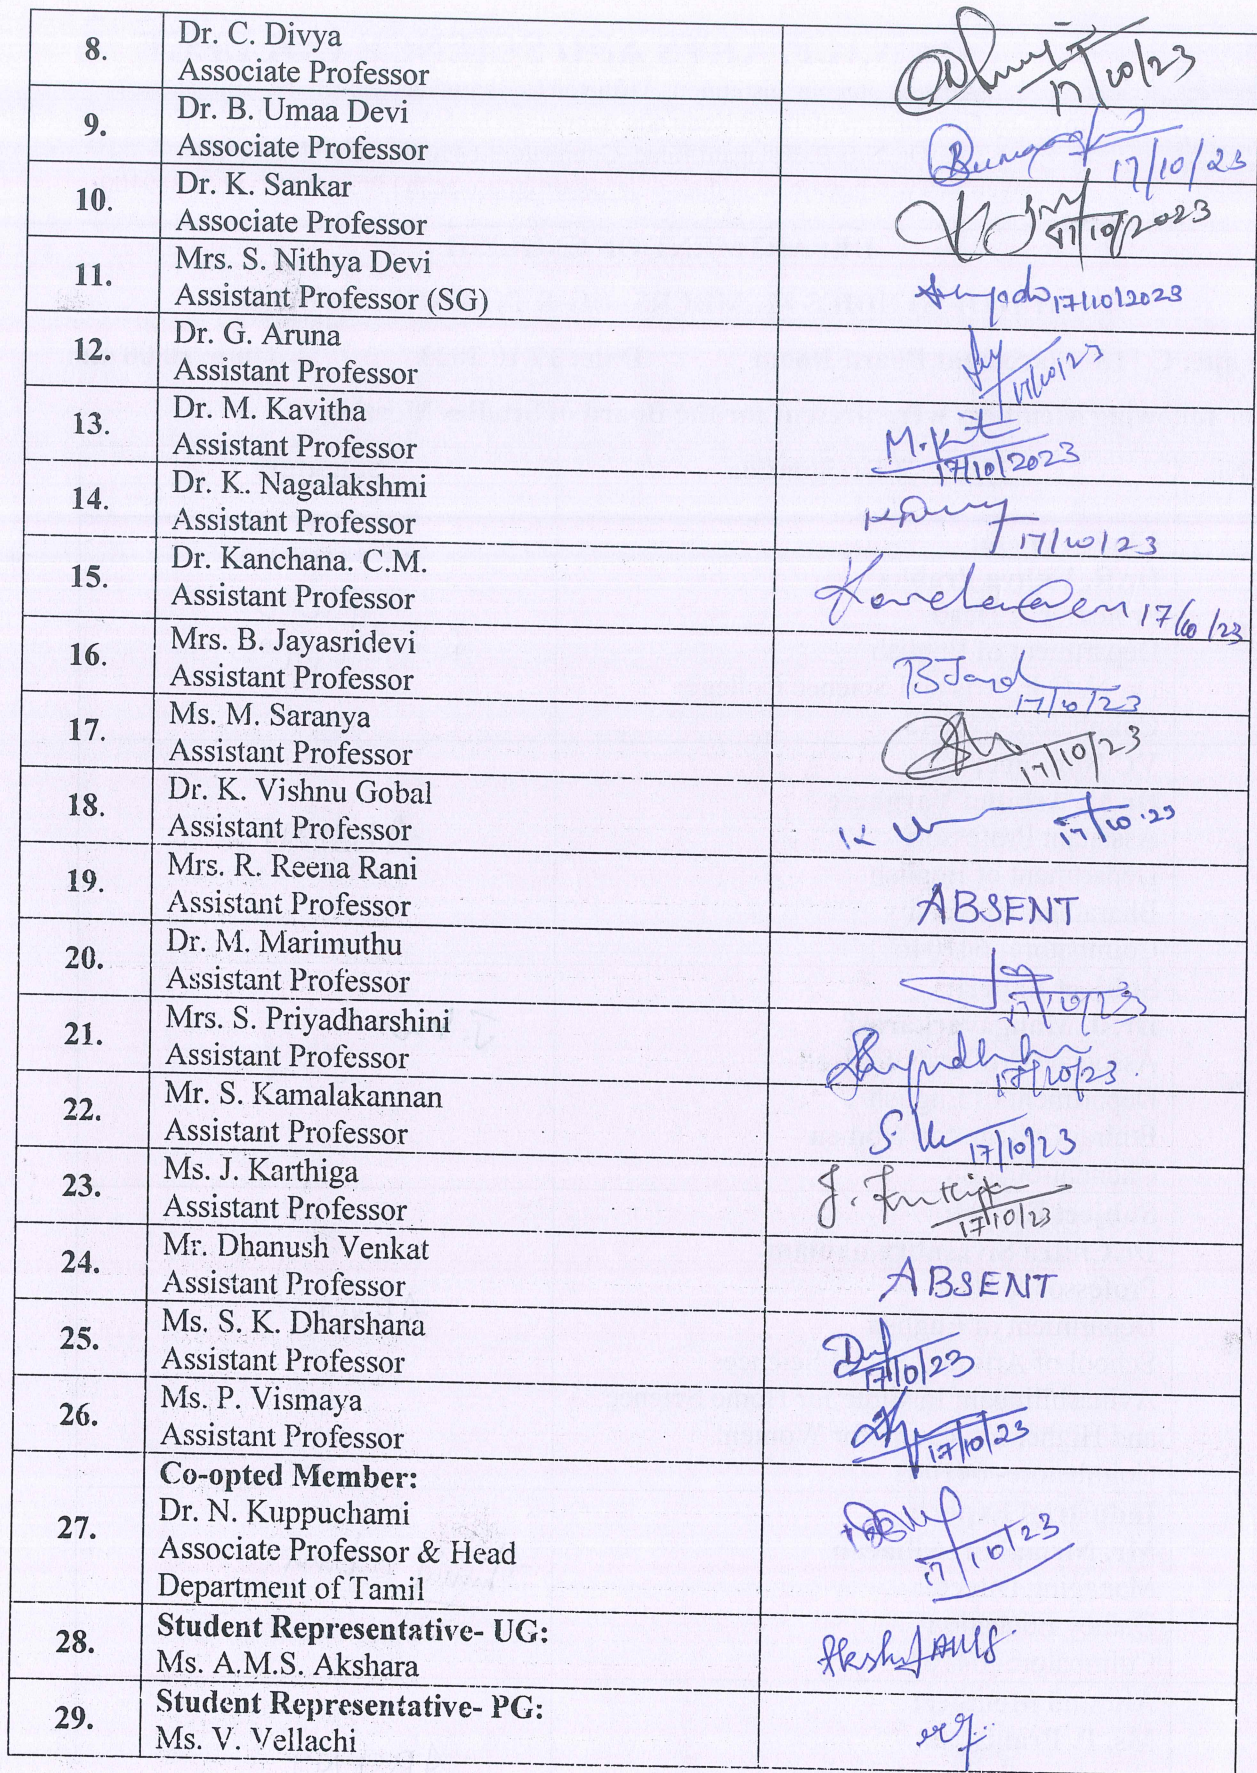 8.
Dr. C. Divya
Associate Professor
17/10/23
9.
Dr. B. Umaa Devi
Associate Professor
17/10/23
10.
Dr. K. Sankar
Associate Professor
17/10/2023
11.
Mrs. S. Nithya Devi
Assistant Professor (SG)
17/10/2023
12.
Dr. G. Aruna
Assistant Professor
17/10/23
13.
Dr. M. Kavitha
Assistant Professor
17/10/2023
14.
Dr. K. Nagalakshmi
Assistant Professor
17/10/23
15.
Dr. Kanchana. C.M.
Assistant Professor
17/10/23
16.
Mrs. B. Jayasridevi
Assistant Professor
17/10/23
17.
Ms. M. Saranya
Assistant Professor
17/10/23
18.
Dr. K. Vishnu Gobal
Assistant Professor
17/10.23
19.
Mrs. R. Reena Rani
Assistant Professor
ABSENT
20.
Dr. M. Marimuthu
Assistant Professor
17/10/23
21.
Mrs. S. Priyadharshini
Assistant Professor
17/10/23
22.
Mr. S. Kamalakannan
Assistant Professor
17/10/23
23.
Ms. J. Karthiga
Assistant Professor
17/10/23
24.
Mr. Dhanush Venkat
Assistant Professor
ABSENT
25.
Ms. S. K. Dharshana
Assistant Professor
17/10/23
26.
Ms. P. Vismaya
Assistant Professor
17/10/23
27.
Co-opted Member:
Dr. N. Kuppuchami
Associate Professor & Head
Department of Tamil
17/10/23
28.
Student Representative- UG:
Ms. A.M.S. Akshara
29.
Student Representative- PG:
Ms. V. Vellachi